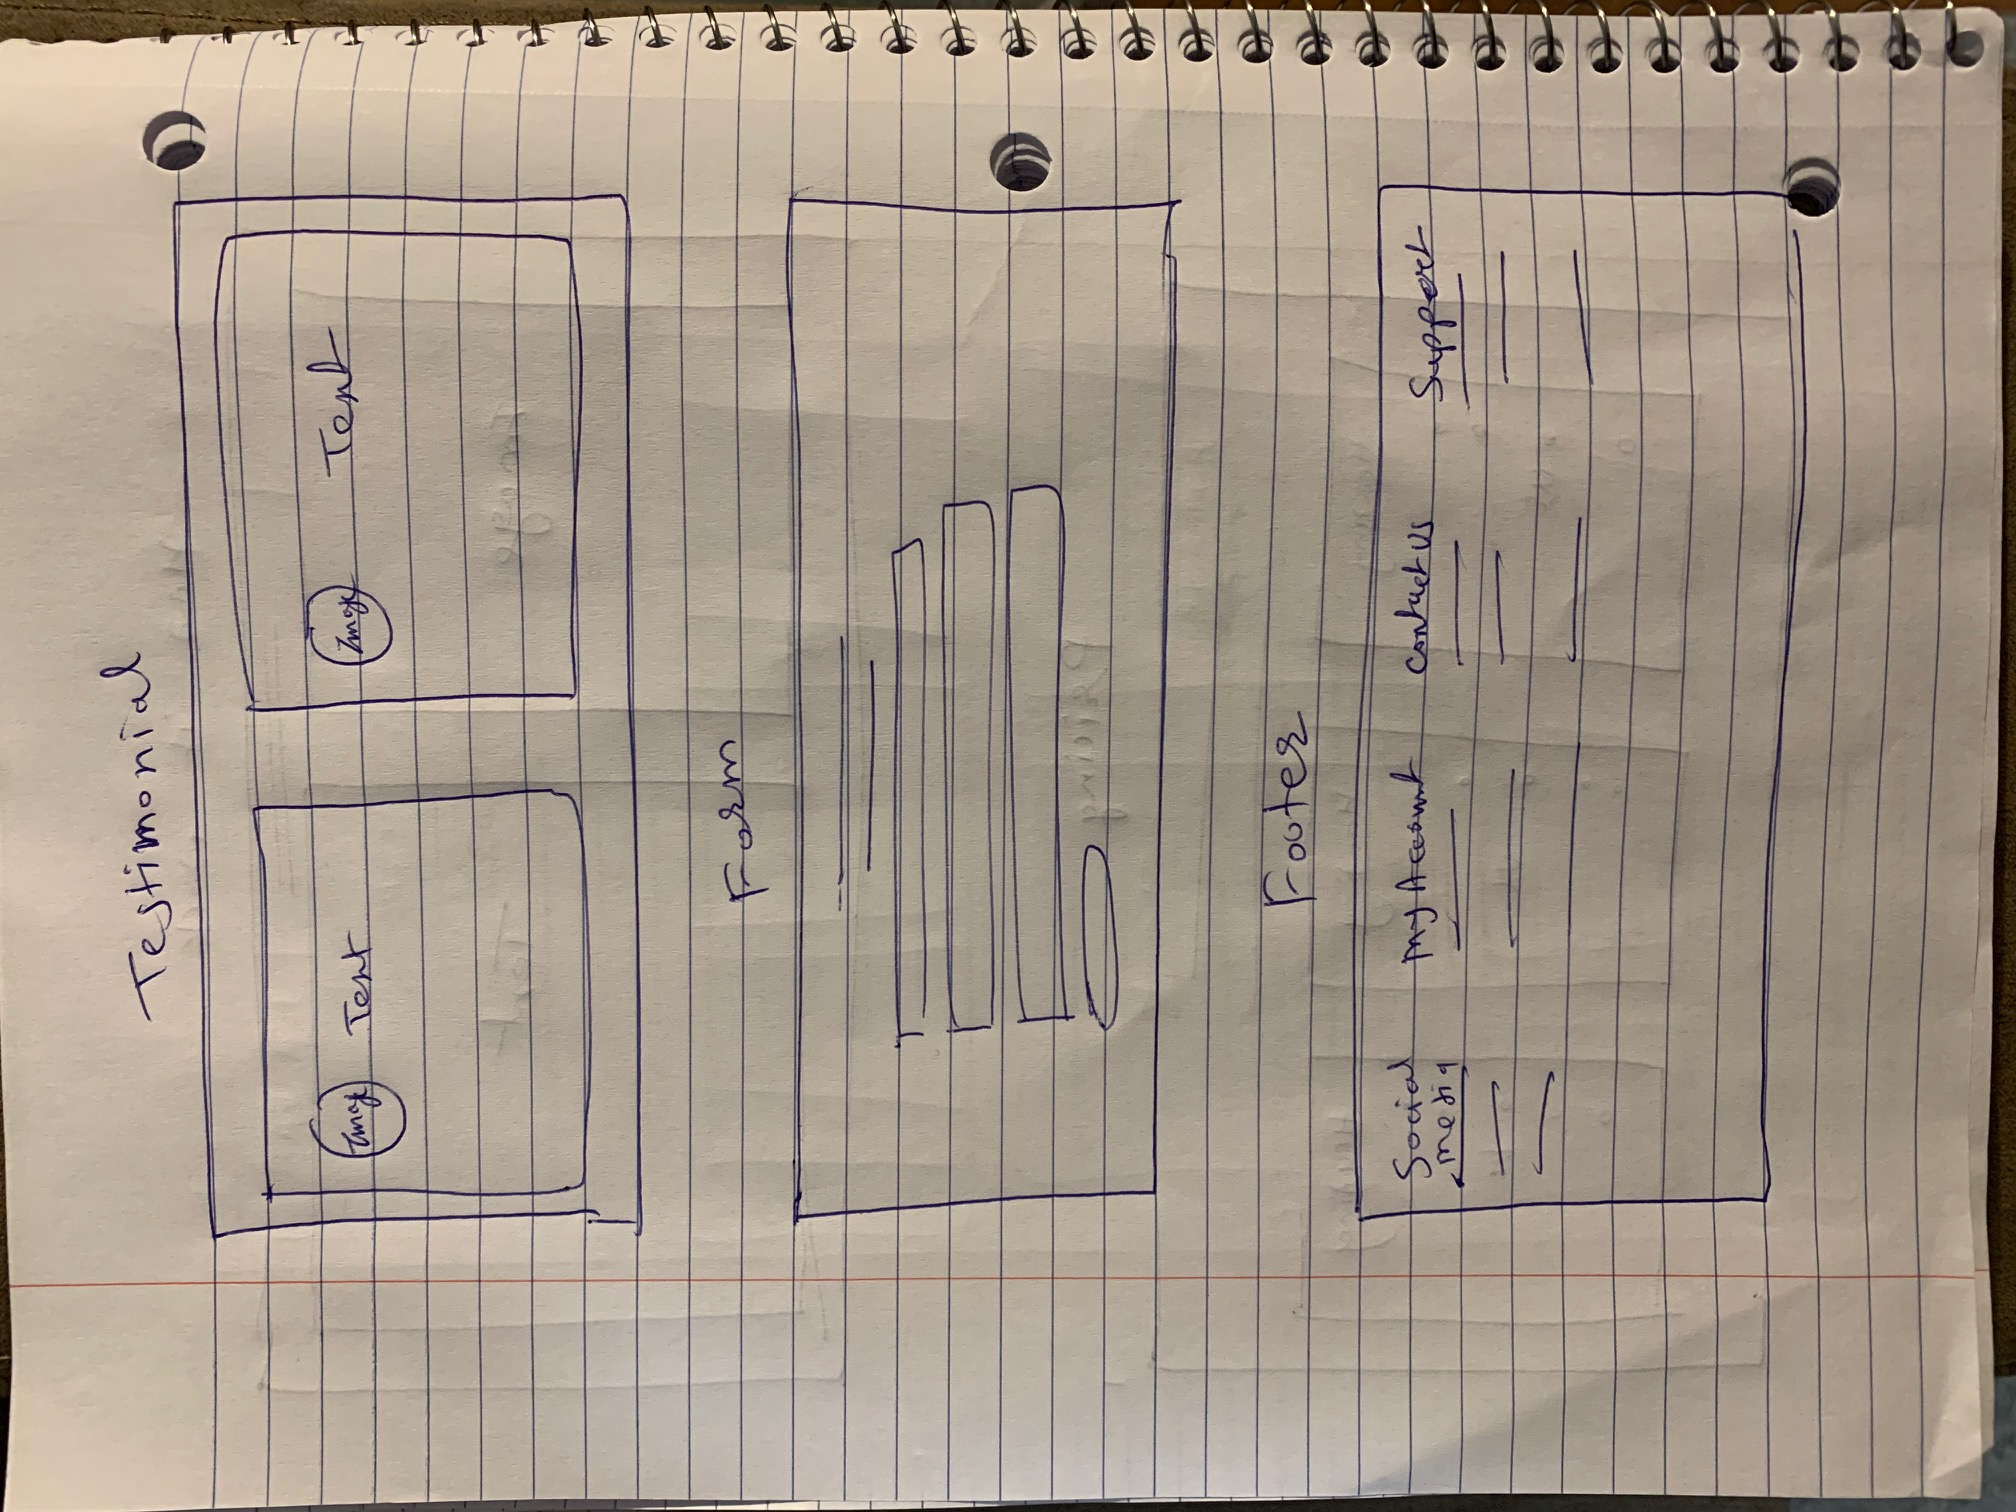 Testimonial
Image Text
Image Text
Form
Footer
Social
media
My Account
Contact Us
Support